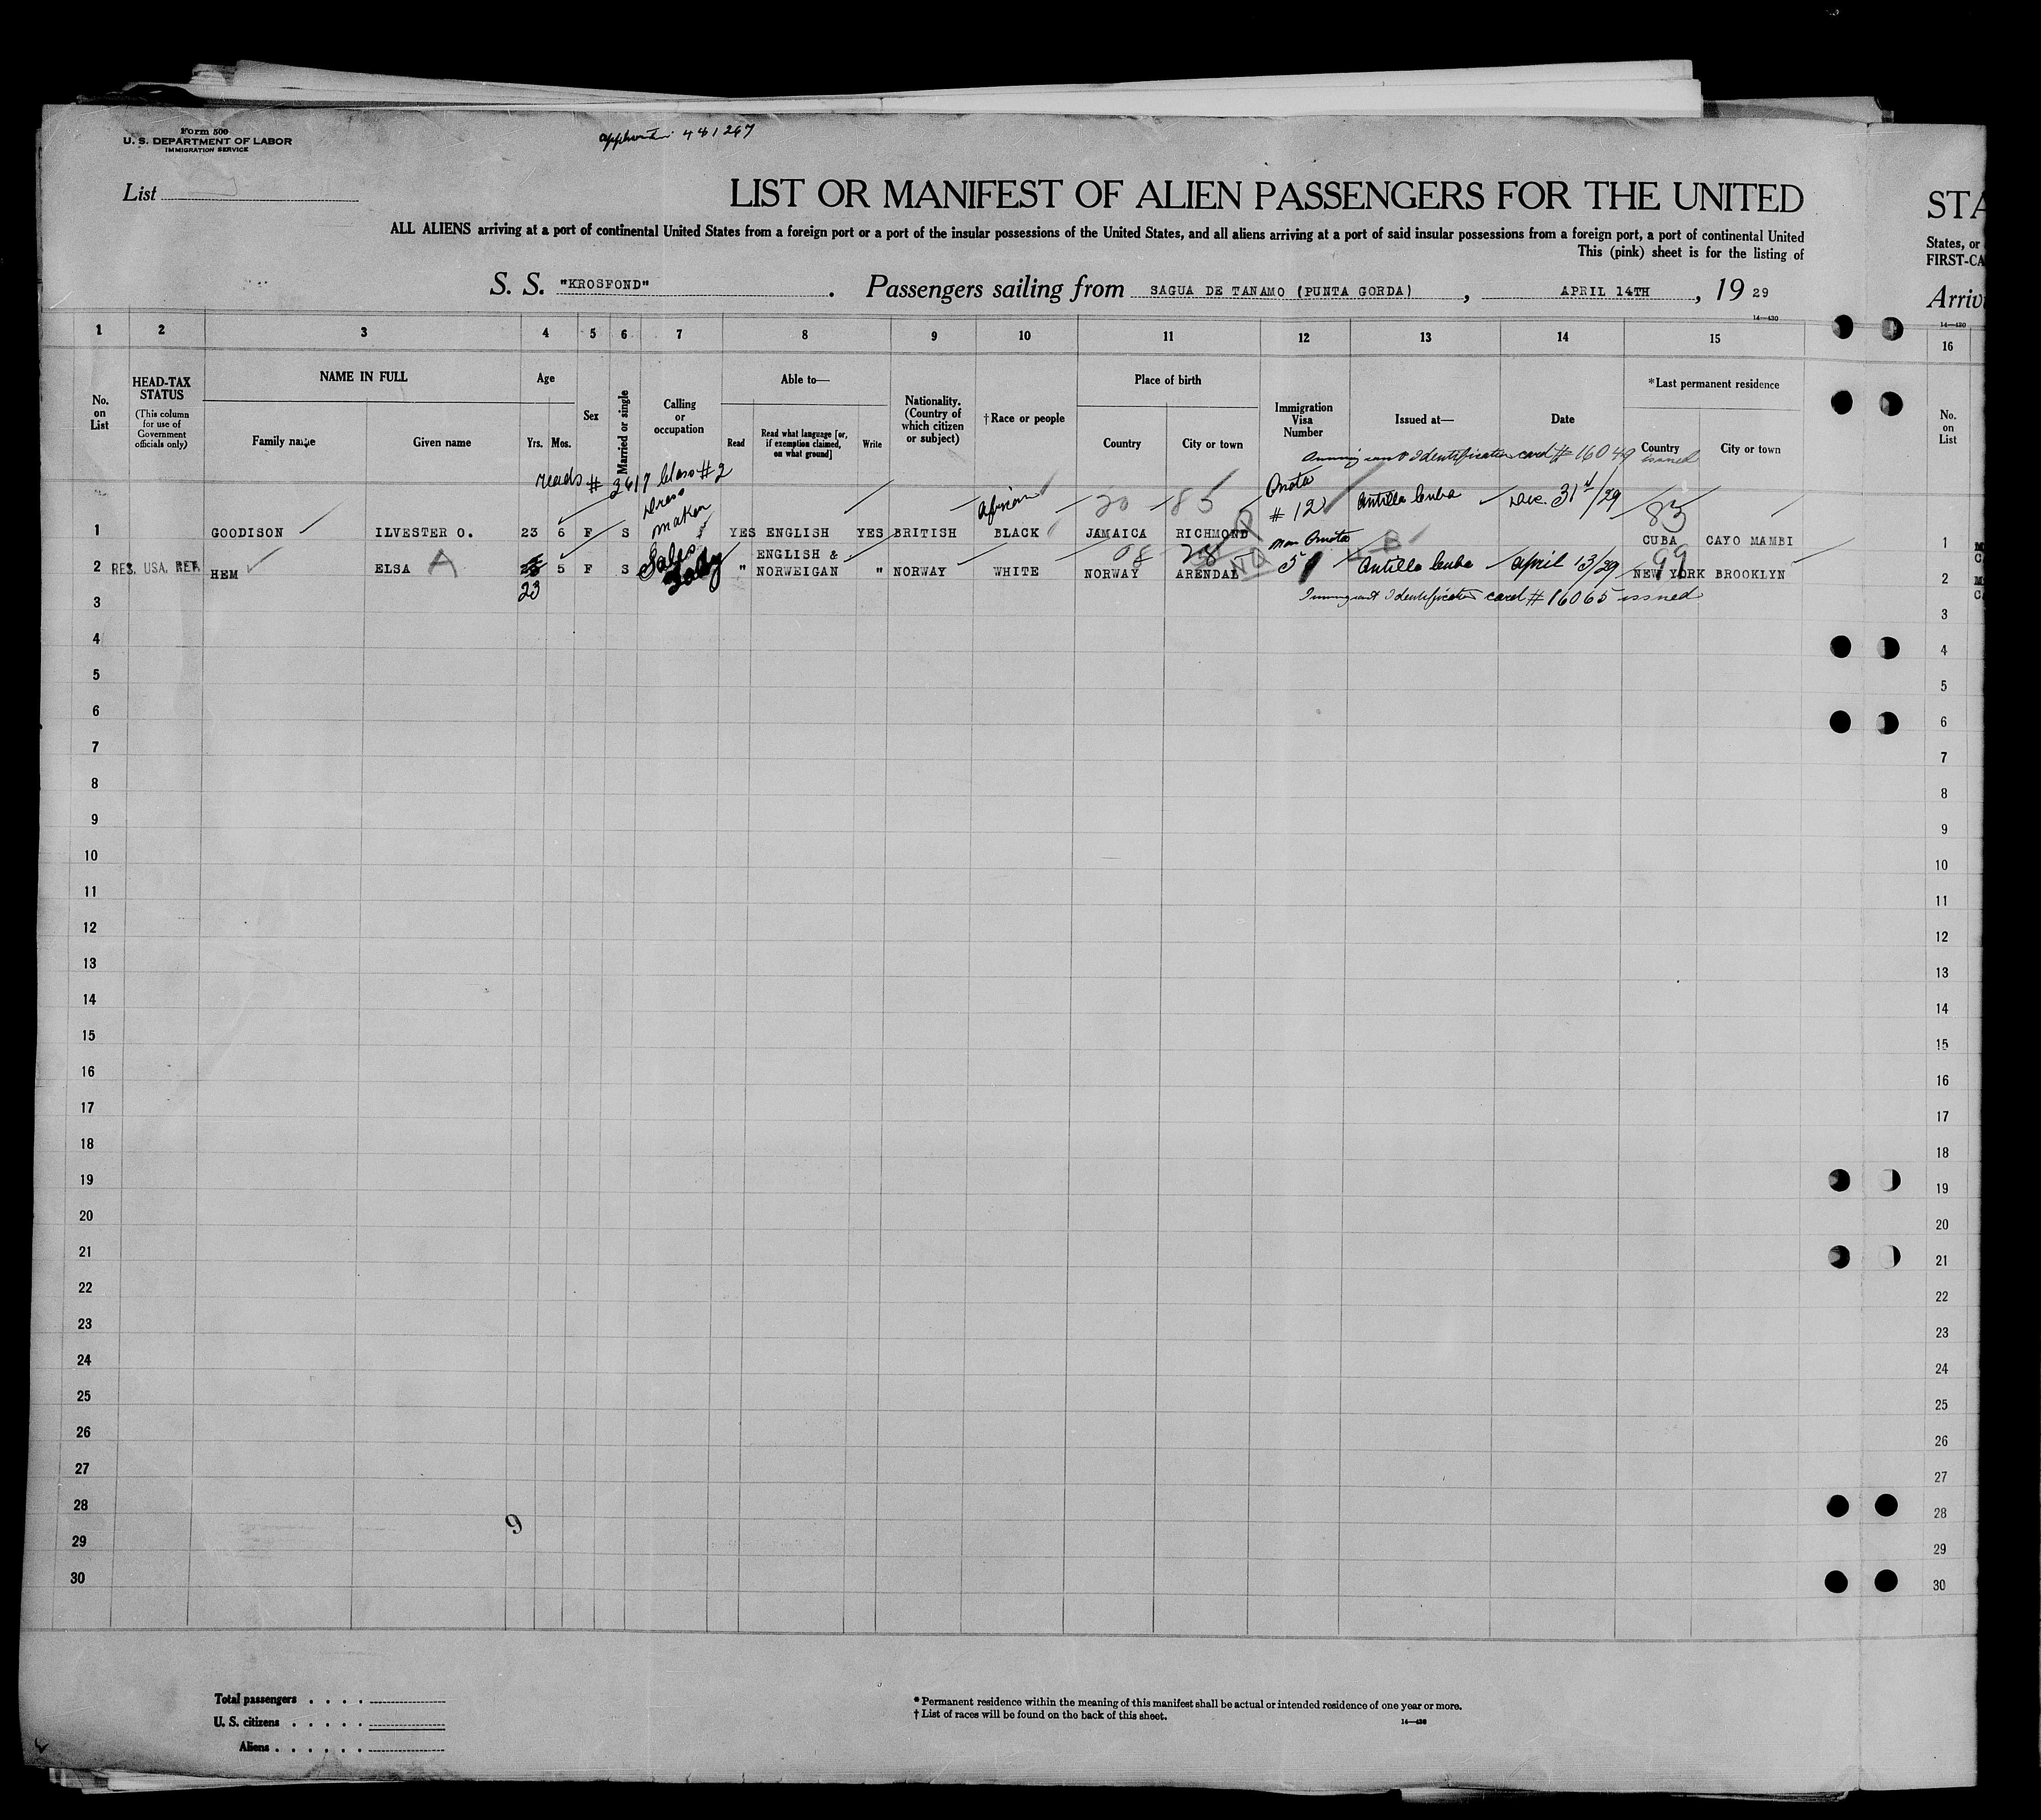 Form 500
U. S. DEPARTMENT OF LABOR
IMMIGRATION SERVICE
481267
List
LIST OR MANIFEST OF ALIEN PASSENGERS FOR THE UNITED
STA
ALL ALIENS arriving at a port of continental United States from a foreign port or a port of the insular possessions of the United States, and all aliens arriving at a port of said insular possessions from a foreign port, a port of continental United
States, or
This (pink) sheet is for the listing of
FIRST-CA
S. S. "KROSFOND". Passengers sailing from SAGUA DE TANAMO (PUNTA GORDA), APRIL 14TH, 1929
Arriv
14—430
14—430
1 2 3 4 5 6 7 8 9 10 11 12 13 14 15 16
No. on List
HEAD-TAX STATUS
(This column for use of Government officials only)
NAME IN FULL
Family name
Given name
Age
Yrs.
Mos.
Sex
Married or single
Calling or occupation
Able to—
Read
Read what language [or, if exemption claimed, on what ground]
Write
Nationality. (Country of which citizen or subject)
†Race or people
Place of birth
Country
City or town
Immigration Visa Number
Issued at—
Date
*Last permanent residence
Country
City or town
No. on List
Identification card # 16049 issued
reads # 2617 Class #2
1 GOODISON ILVESTER O. 23 6 F S Dress maker YES ENGLISH YES BRITISH African BLACK 20 JAMAICA 85 RICHMOND Q Quota # 12 Antilla Cuba Dec. 31st/29 83 CUBA CAYO MAMBI 1
2 RES. USA. RET. HEM ELSA A 23 5 F S Sales Lady " ENGLISH & NORWEIGAN " NORWAY WHITE 08 NORWAY 28 ARENDAL NQ Non Quota 51 B Antilla Cuba April 13/29 99 NEW YORK BROOKLYN 2
Immigrant Identification card # 16065 issued
3 3
4 4
5 5
6 6
7 7
8 8
9 9
10 10
11 11
12 12
13 13
14 14
15 15
16 16
17 17
18 18
19 19
20 20
21 21
22 22
23 23
24 24
25 25
26 26
27 27
28 28
9
29 29
30 30
Total passengers
U. S. citizens
Aliens
* Permanent residence within the meaning of this manifest shall be actual or intended residence of one year or more.
† List of races will be found on the back of this sheet.
14—430